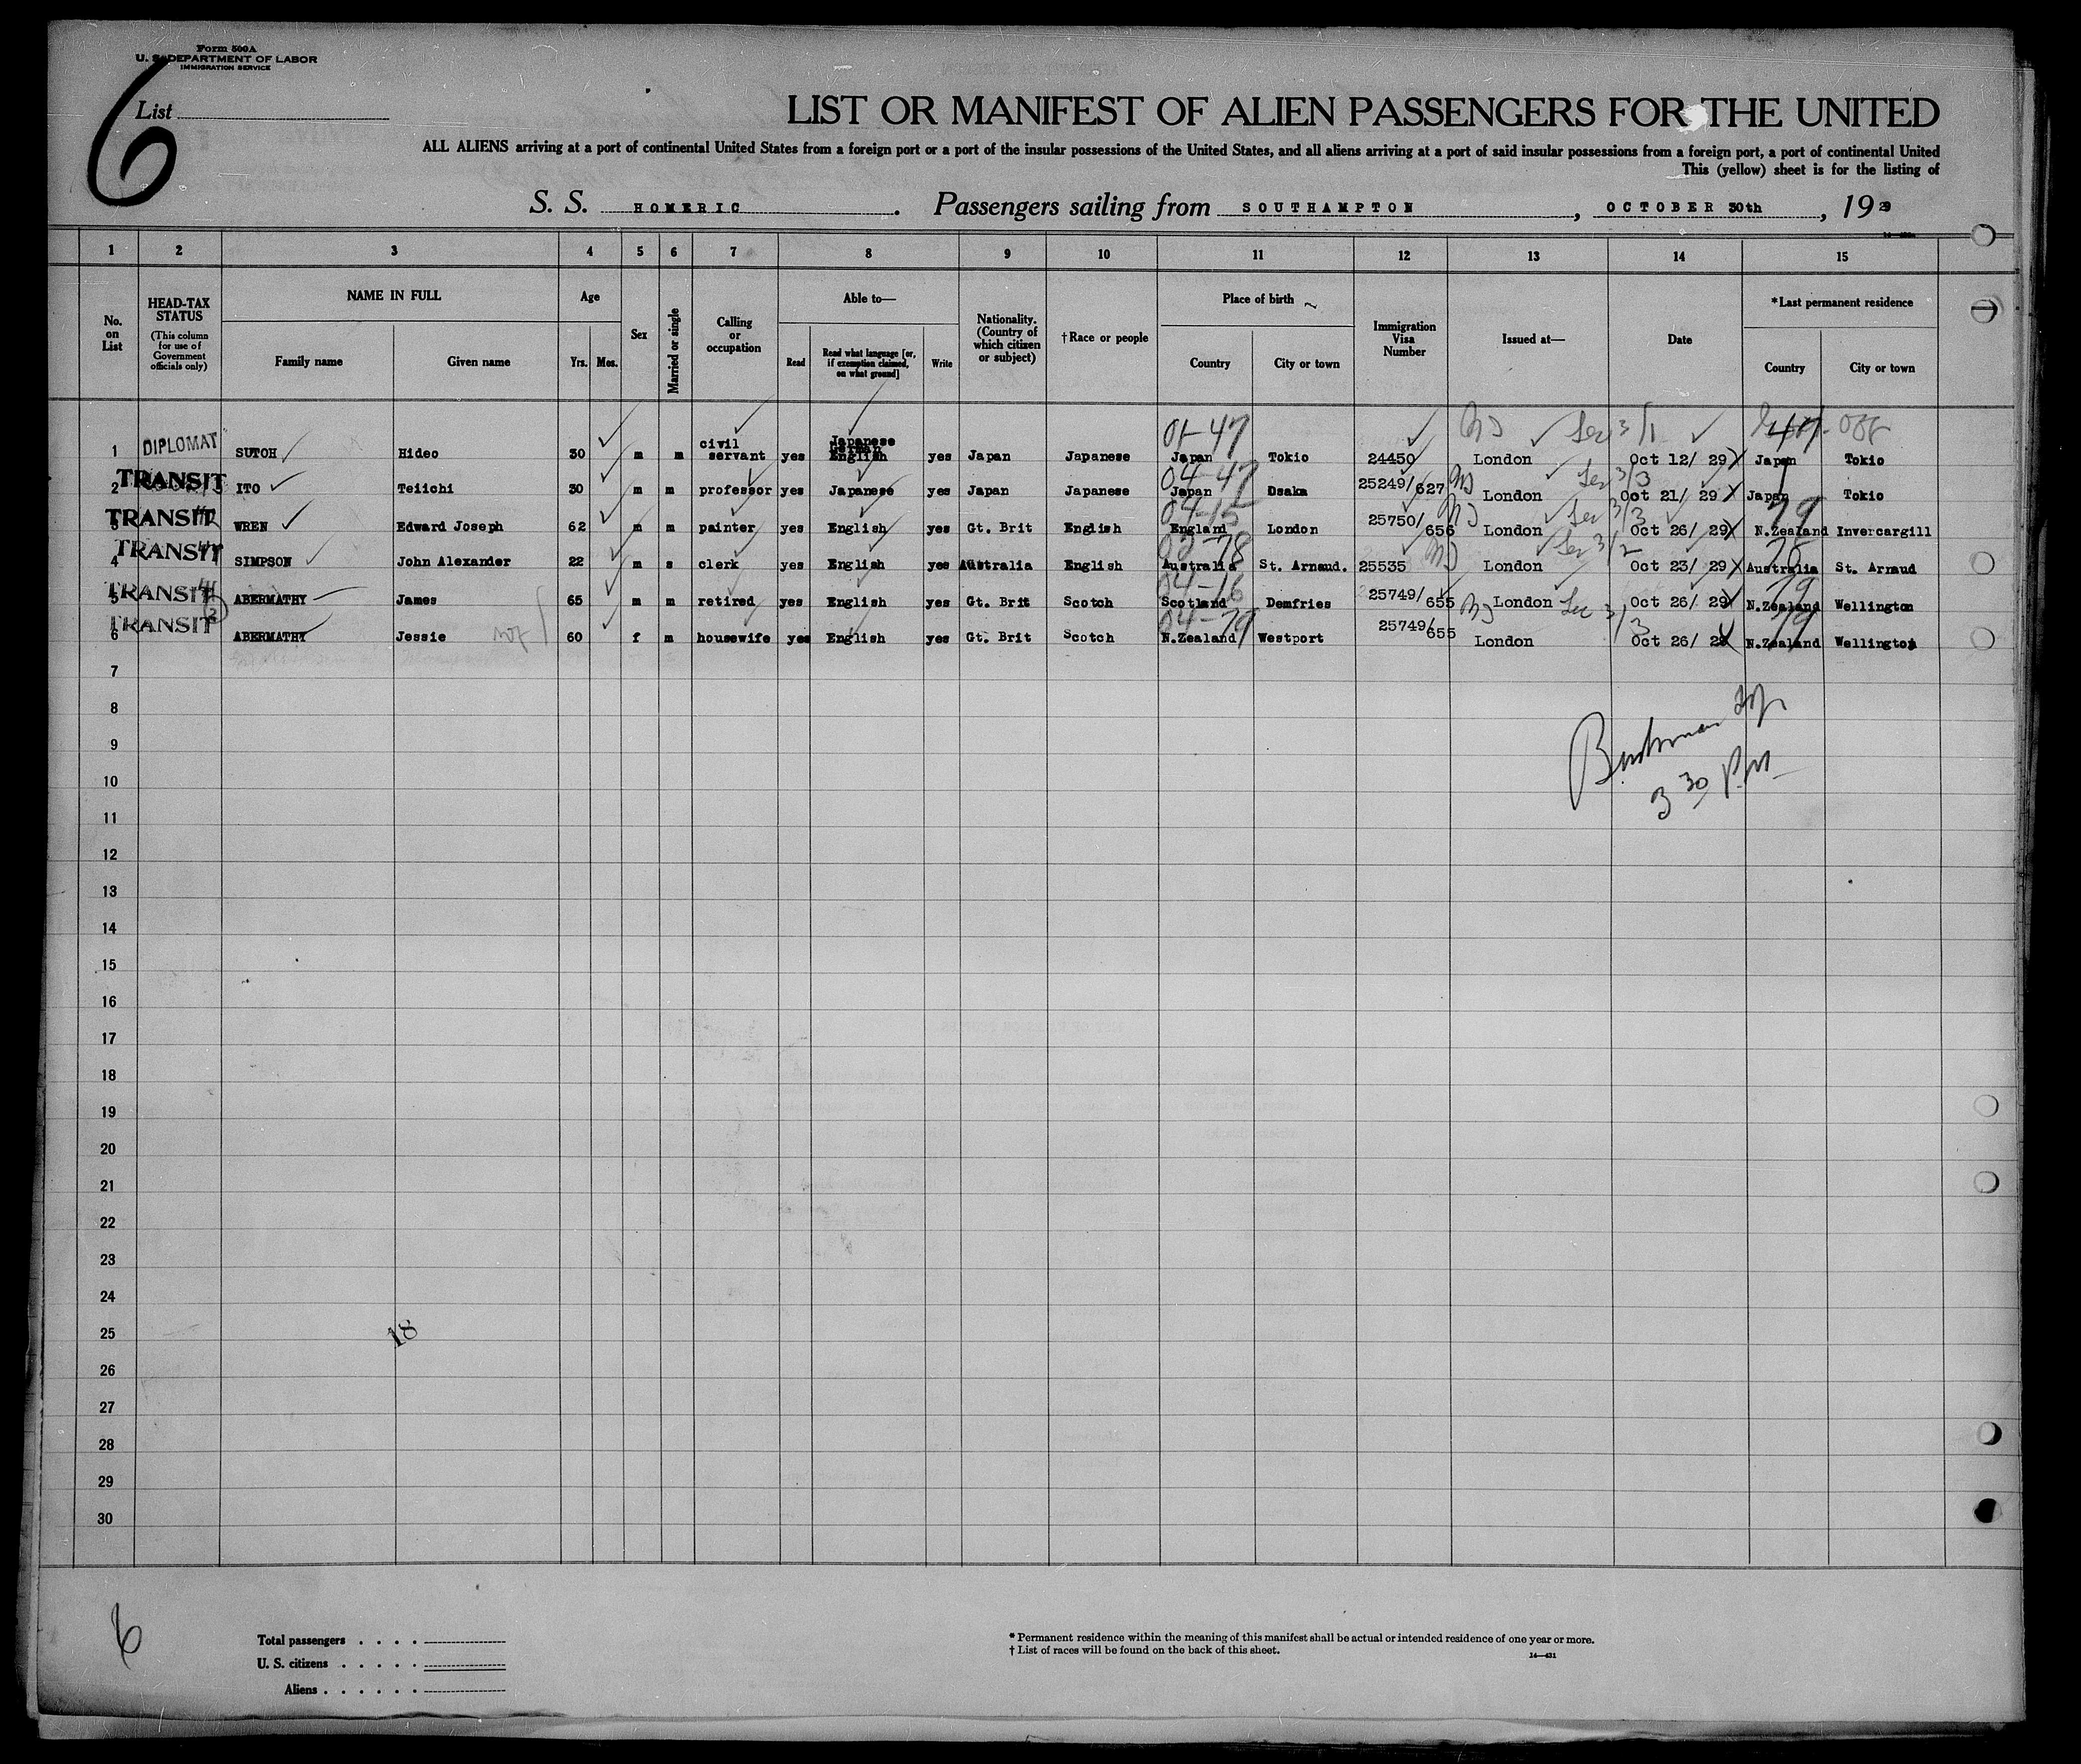 Form 500A
U. S. DEPARTMENT OF LABOR
IMMIGRATION SERVICE
6
List
LIST OR MANIFEST OF ALIEN PASSENGERS FOR THE UNITED
ALL ALIENS arriving at a port of continental United States from a foreign port or a port of the insular possessions of the United States, and all aliens arriving at a port of said insular possessions from a foreign port, a port of continental United
This (yellow) sheet is for the listing of
S. S. HOMERIC. Passengers sailing from SOUTHAMPTON, OCTOBER 30th, 1929
1 2 3 4 5 6 7 8 9 10 11 12 13 14 15
No. on List
HEAD-TAX STATUS
(This column for use of Government officials only)
NAME IN FULL
Family name
Given name
Age
Yrs. Mos.
Sex
Married or single
Calling or occupation
Able to—
Read
Read what language [or, if exemption claimed, on what ground]
Write
Nationality. (Country of which citizen or subject)
†Race or people
Place of birth
Country
City or town
Immigration Visa Number
Issued at—
Date
*Last permanent residence
Country
City or town
01-47
1 DIPLOMAT SUTOH Hideo 30 m m civil servant yes Japanese German English yes Japan Japanese Japan Tokio 24450 London Oct 12/ 29 Japan Tokio
04-47
2 TRANSIT ITO Teiichi 30 m m professor yes Japanese yes Japan Japanese Japan Osaka 25249/627 London Oct 21/ 29 Japan Tokio
04-15 79
3 TRANSIT WREN Edward Joseph 62 m m painter yes English yes Gt. Brit English England London 25750/656 London Oct 26/ 29 N.Zealand Invercargill
78
4 TRANSIT SIMPSON John Alexander 22 m s clerk yes English yes Australia English Australia St. Arnaud. 25535 London Oct 23/ 29 Australia St. Arnaud
04-16 79
5 TRANSIT ABERMATHY James 65 m m retired yes English yes Gt. Brit Scotch Scotland Demfries 25749/655 London Oct 26/ 29 N.Zealand Wellington
04-79 79
6 TRANSIT ABERMATHY Jessie 60 f m housewife yes English yes Gt. Brit Scotch N.Zealand Westport 25749/655 London Oct 26/ 29 N.Zealand Wellington
7
8
9
10
3 30 PM
11
12
13
14
15
16
17
18
19
20
21
22
23
24
25
18
26
27
28
29
30
6
Total passengers . . . .
U. S. citizens . . . . .
Aliens . . . . . .
* Permanent residence within the meaning of this manifest shall be actual or intended residence of one year or more.
† List of races will be found on the back of this sheet.
14—431